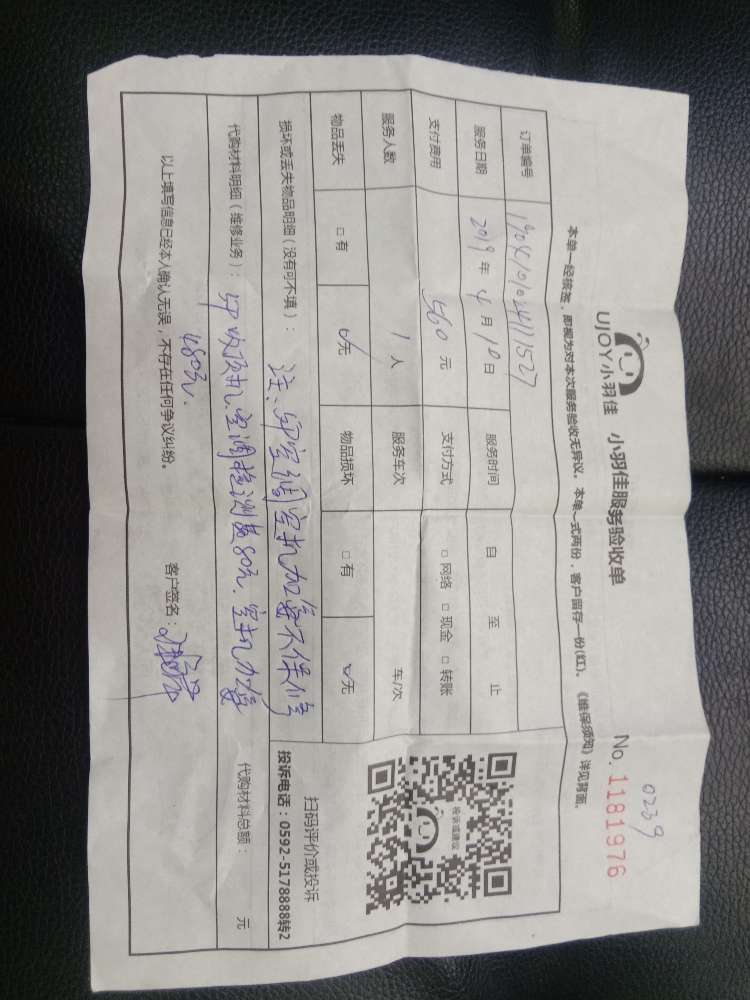 0239
UJOY小羽佳 小羽佳服务验收单 No. 1181976
本单一经接签，即视为对本次服务验收无异议。本单一式两份，客户留存一份(红)。《维保须知》详见背面。
订单编号
服务日期 2019 年 4 月 10 日 服务时间 自 至 止
支付费用 560 元 支付方式 □ 网络 □ 现金 □ 转账
服务人数 1 人 服务车次 车/次
物品丢失 □ 有 ✓无 物品损坏 □ 有 ✓无
损坏或丢失物品明细（没有可不填）： 注：空调室机加氟不保修
代购材料明细（维修业务）： 空调检测费80元.室机加氟
480元.
代购材料总额： 元
以上填写信息已经本人确认无误，不存在任何争议纠纷。 客户签名：
投诉或建议
扫码评价或投诉
投诉电话：0592-5178888转2